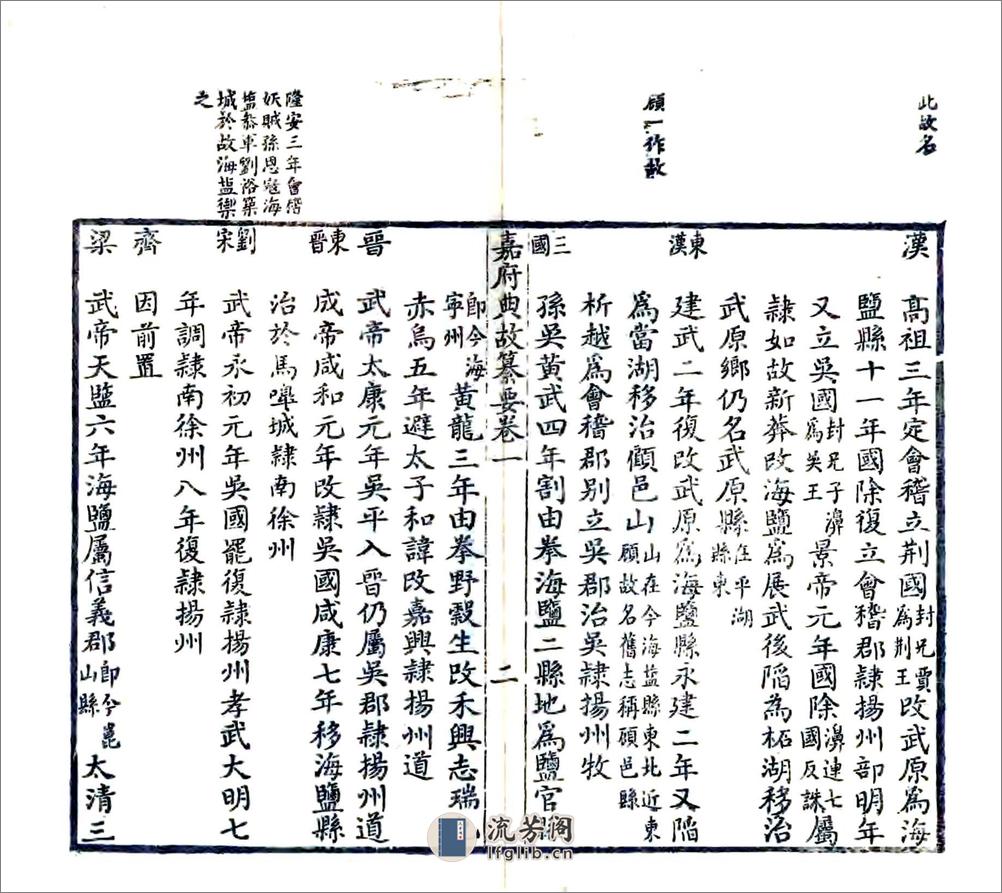 此故名
顧一作故
隆安三年會稽
妖賊孫恩寇海
塩叅軍劉裕築
城於故海塩禦
之
漢
高祖三年定會稽立荆國封兄賈爲荆王改武原爲海
鹽縣十一年國除復立會稽郡隷揚州部明年
又立吳國封兄子濞爲吳王景帝元年國除濞連七國反誅屬
隷如故新莽改海鹽爲展武後陷為柘湖移治
武原鄉仍名武原縣在平湖縣東
東漢
建武二年復改武原爲海鹽縣永建二年又陷
爲當湖移治顧邑山山在今海塩縣東北近東顧故名舊志稱碩邑縣
析越爲會稽郡别立吳郡治吳隷揚州牧
三國
孫吳黃武四年割由拳海鹽二縣地爲鹽官
嘉府典故纂要卷一 二
即今海寧州黃龍三年由拳野糓生改禾興志瑞
赤烏五年避太子和諱改嘉興隷揚州道
晉
武帝太康元年吳平入晉仍屬吳郡隷揚州道
東晉
成帝咸和元年改隷吳國咸康七年移海鹽縣
治於馬嘷城隷南徐州
劉宋
武帝永初元年吳國罷復隷揚州孝武大明七
年調隷南徐州八年復隷揚州
齊
因前置
梁
武帝天監六年海鹽屬信義郡即今崑山縣太清三
流芳阁
lfglib.cn